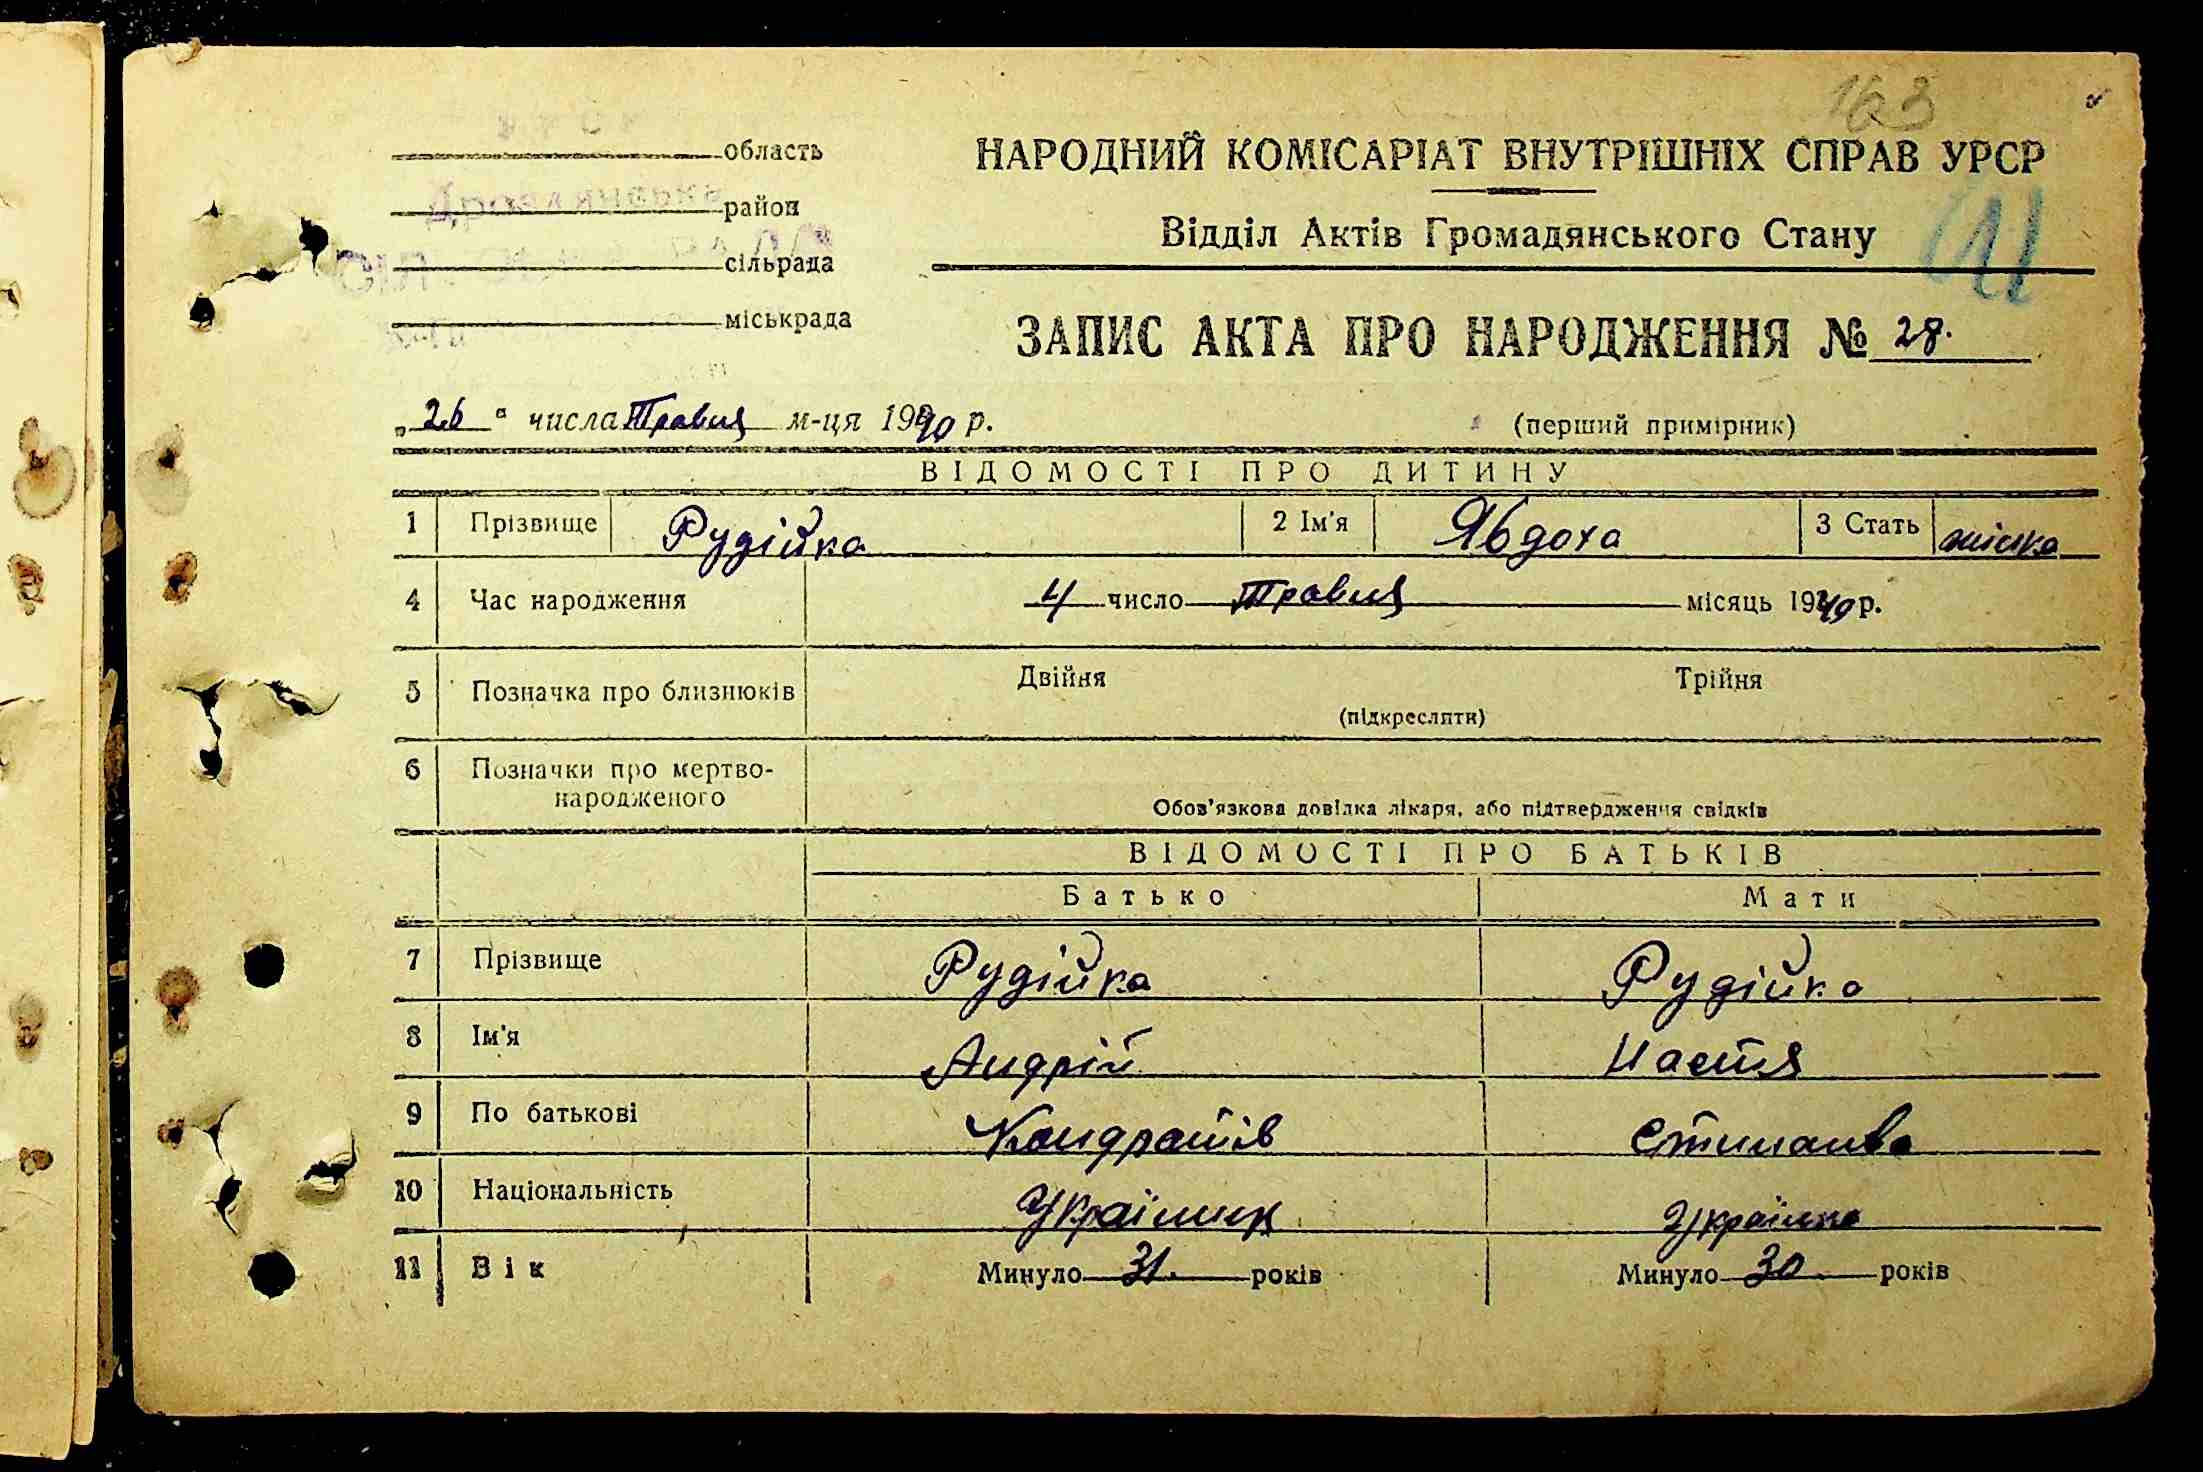 163
область
район
сільрада
міськрада
НАРОДНИЙ КОМІСАРІАТ ВНУТРІШНІХ СПРАВ УРСР
Відділ Актів Громадянського Стану
ЗАПИС АКТА ПРО НАРОДЖЕННЯ № 28.
„26“ числа Травня м-ця 1940 р.
(перший примірник)
ВІДОМОСТІ ПРО ДИТИНУ
1 Прізвище Рудійка 2 Ім'я Явдоха 3 Стать жінка
4 Час народження 4 число Травня місяць 1940 р.
5 Позначка про близнюків Двійня Трійня
(підкреслити)
6 Позначки про мертво-
народженого
Обов'язкова довілка лікаря, або підтвердження свідків
ВІДОМОСТІ ПРО БАТЬКІВ
Батько Мати
7 Прізвище Рудійка Рудійка
8 Ім'я Андрій Настя
9 По батькові Кондратів Степанва
10 Національність Українец Українка
11 Вік Минуло 31. років Минуло 30. років